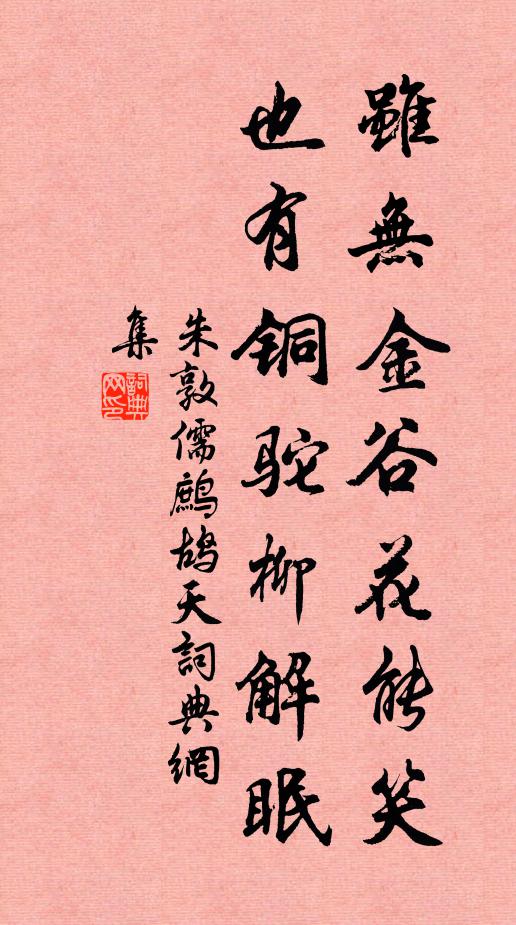 雖無金谷花能笑
也有铜驼柳解眠
朱敦儒鷓鴣天詞典網
集
詞典
网印